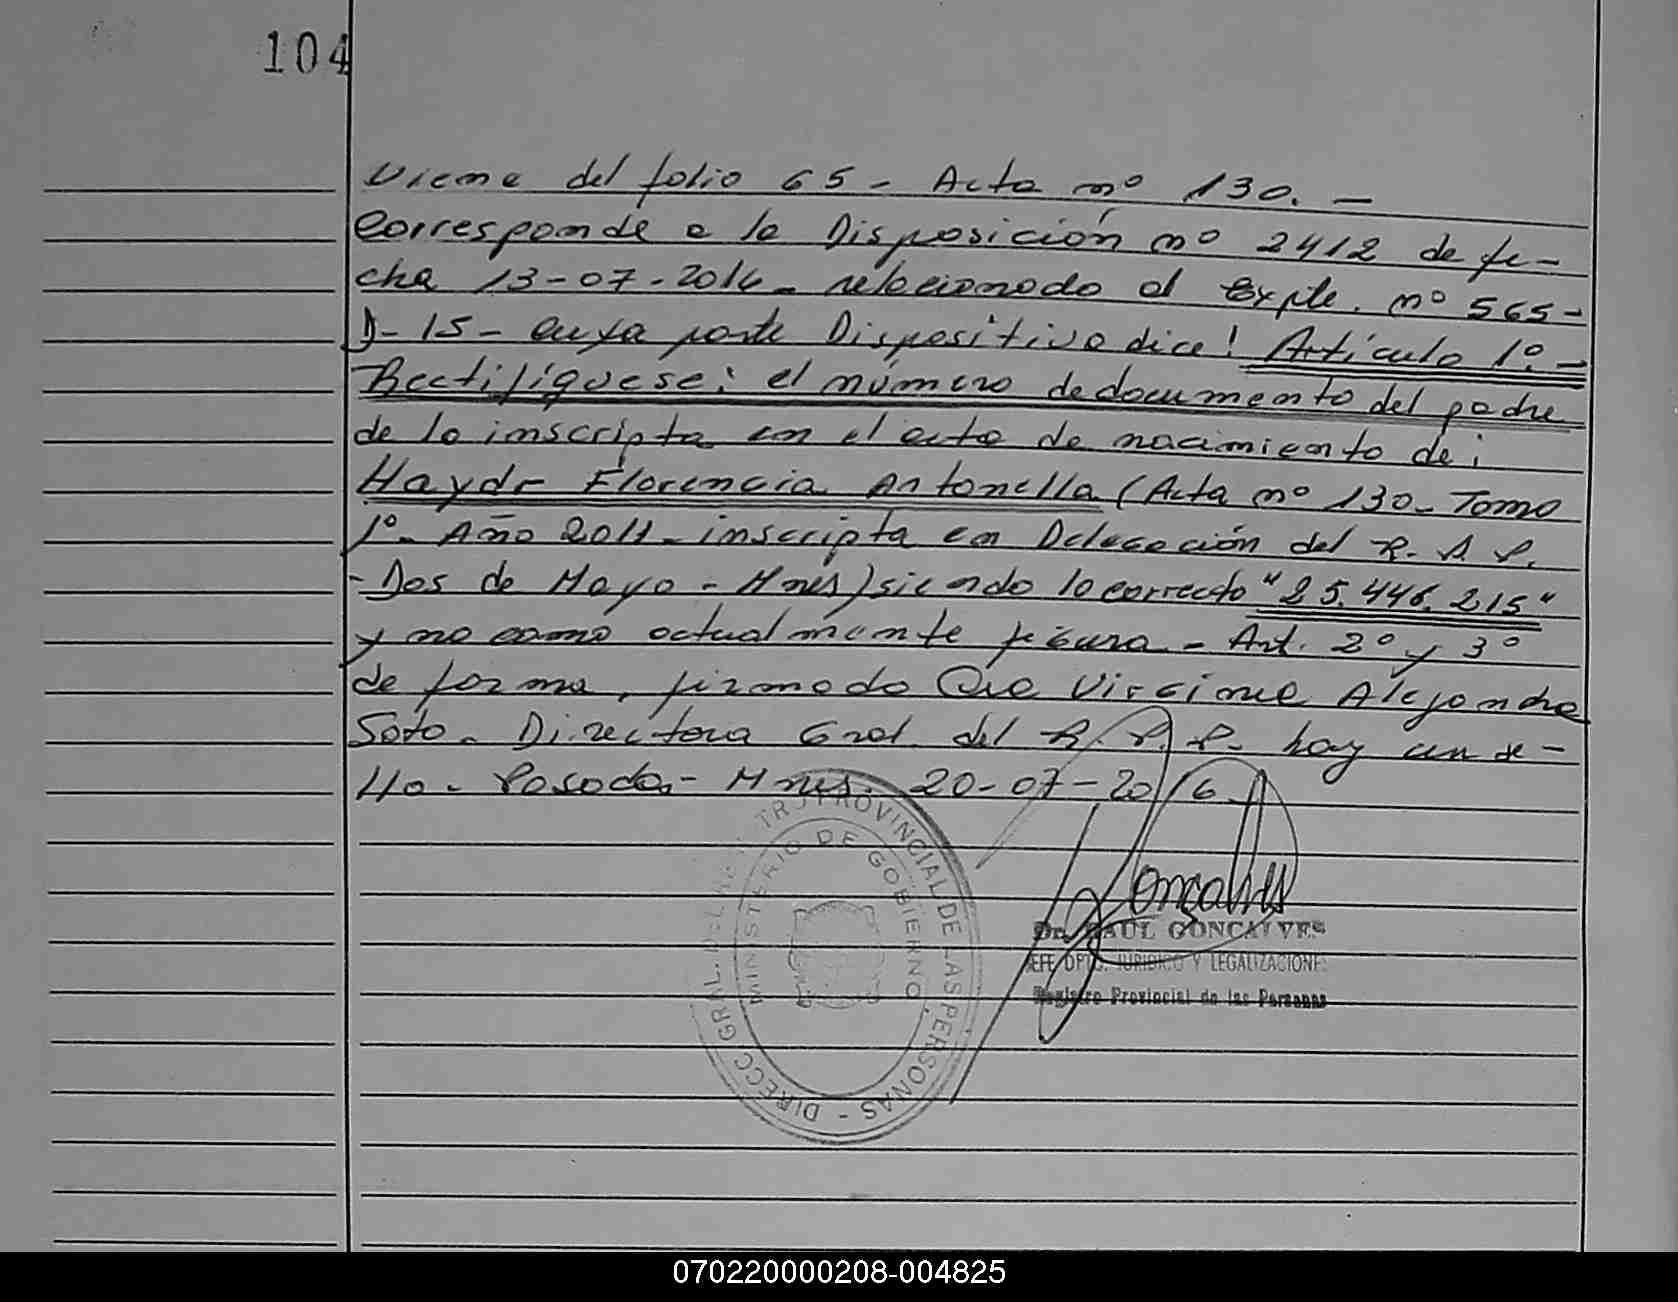 104
Viene del folio 65 - Acta nº 130. -
Corresponde a la Disposición nº 2412 de fe-
cha 13-07-2016 - relacionado al Expte. nº 565-
D-15- cuya parte Dispositiva dice: Artículo 1º.-
Rectifíquese: el número de documento del padre
de la inscripta en el acta de nacimiento de:
Haydr Florencia Antonella (Acta nº 130- Tomo
1º- Año 2011- inscripta en Delegación del R. P. P.
-Dos de Mayo - Mnes) siendo lo correcto "25.446.215"
y no como actualmente figura - Art. 2º y 3º
de forma, firmado Virginia Alejandra
Soto. Directora Gral. del R. P. P. hay un se-
llo. Posadas - Mnes. 20-07-2016.
DIRECC GRAL. DEL REGISTRO PROVINCIAL DE LAS PERSONAS -
MINISTERIO DE GOBIERNO
Goncalves
Dr. RAUL GONCALVES
JEFE DPTO. JURIDICO Y LEGALIZACIONES
Registro Provincial de las Personas
070220000208-004825